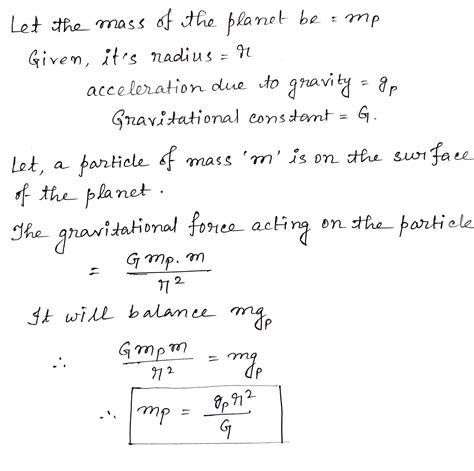 Let the mass of the planet be = mp
Given, it's radius = r
acceleration due to gravity = gp
Gravitational constant = G.
Let, a particle of mass 'm' is on the surface
of the planet.
The gravitational force acting on the particle
= G mp. m / r²
It will balance mgp
∴ G mp m / r² = mgp
∴ mp = gp r² / G